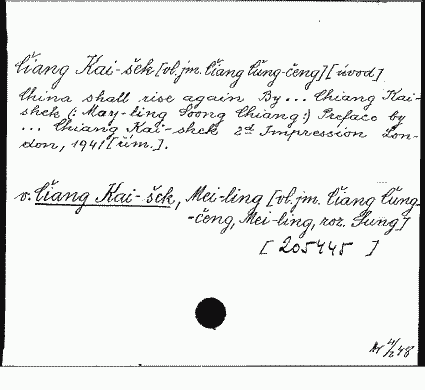 Čiang Kai-šek [vl.jm. Čiang Čung-čeng] [úvod]
China shall rise again By... Chiang Kai-
shek (: May-ling Soong Chiang:) Preface by
... Chiang Kai-shek 2d Impression Lon-
don, 1941 [řím.].
v. Čiang Kai-šek, Mei-ling [vl.jm. Čiang Čung
-čeng, Mei-ling, roz. Sung]
[ 205445 ]